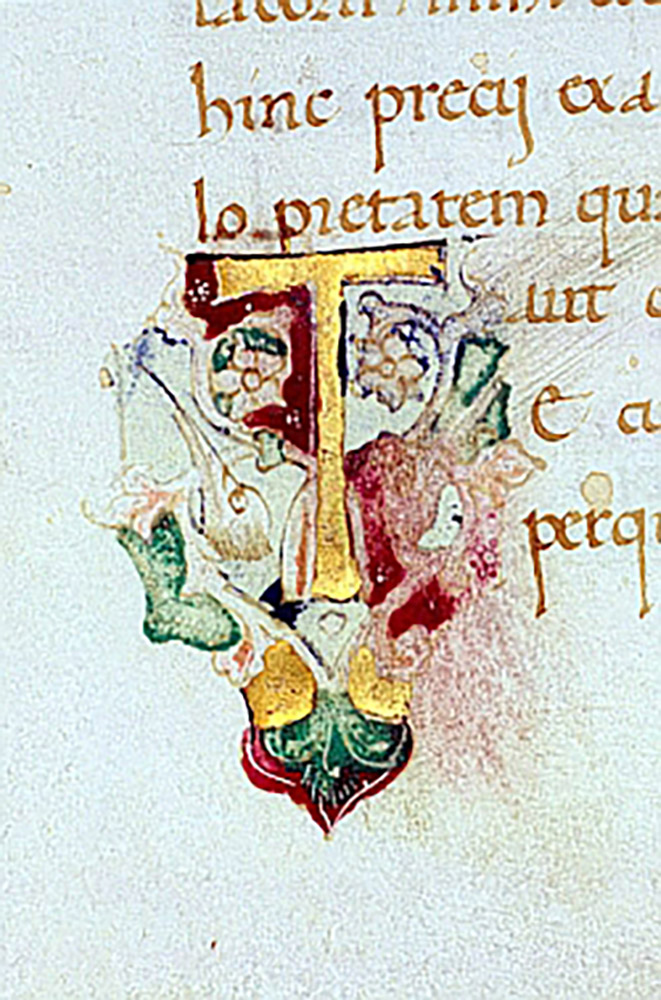 hinc precij exa
lo pietatem qua
Taut c
E cu
perqu